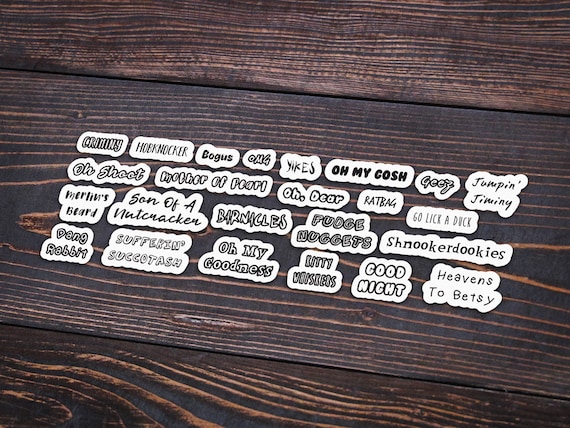 CRIMINY
HOBKNOCKER
Bogus
OMG
YIKES
OH MY GOSH
Geez
Jumpin'
Jiminy
Oh Shoot
Mother Of Pearl
Oh, Dear
RATBAG
GO LICK A DUCK
Merlin's
Beard
Son Of A
Nutcracker
BARNACLES
FUDGE
NUGGETS
Shnookerdookies
Dang
Rabbit
SUFFERIN'
SUCCOTASH
Oh My
Goodness
KITTY
WHISKERS
GOOD
NIGHT
Heavens
To Betsy